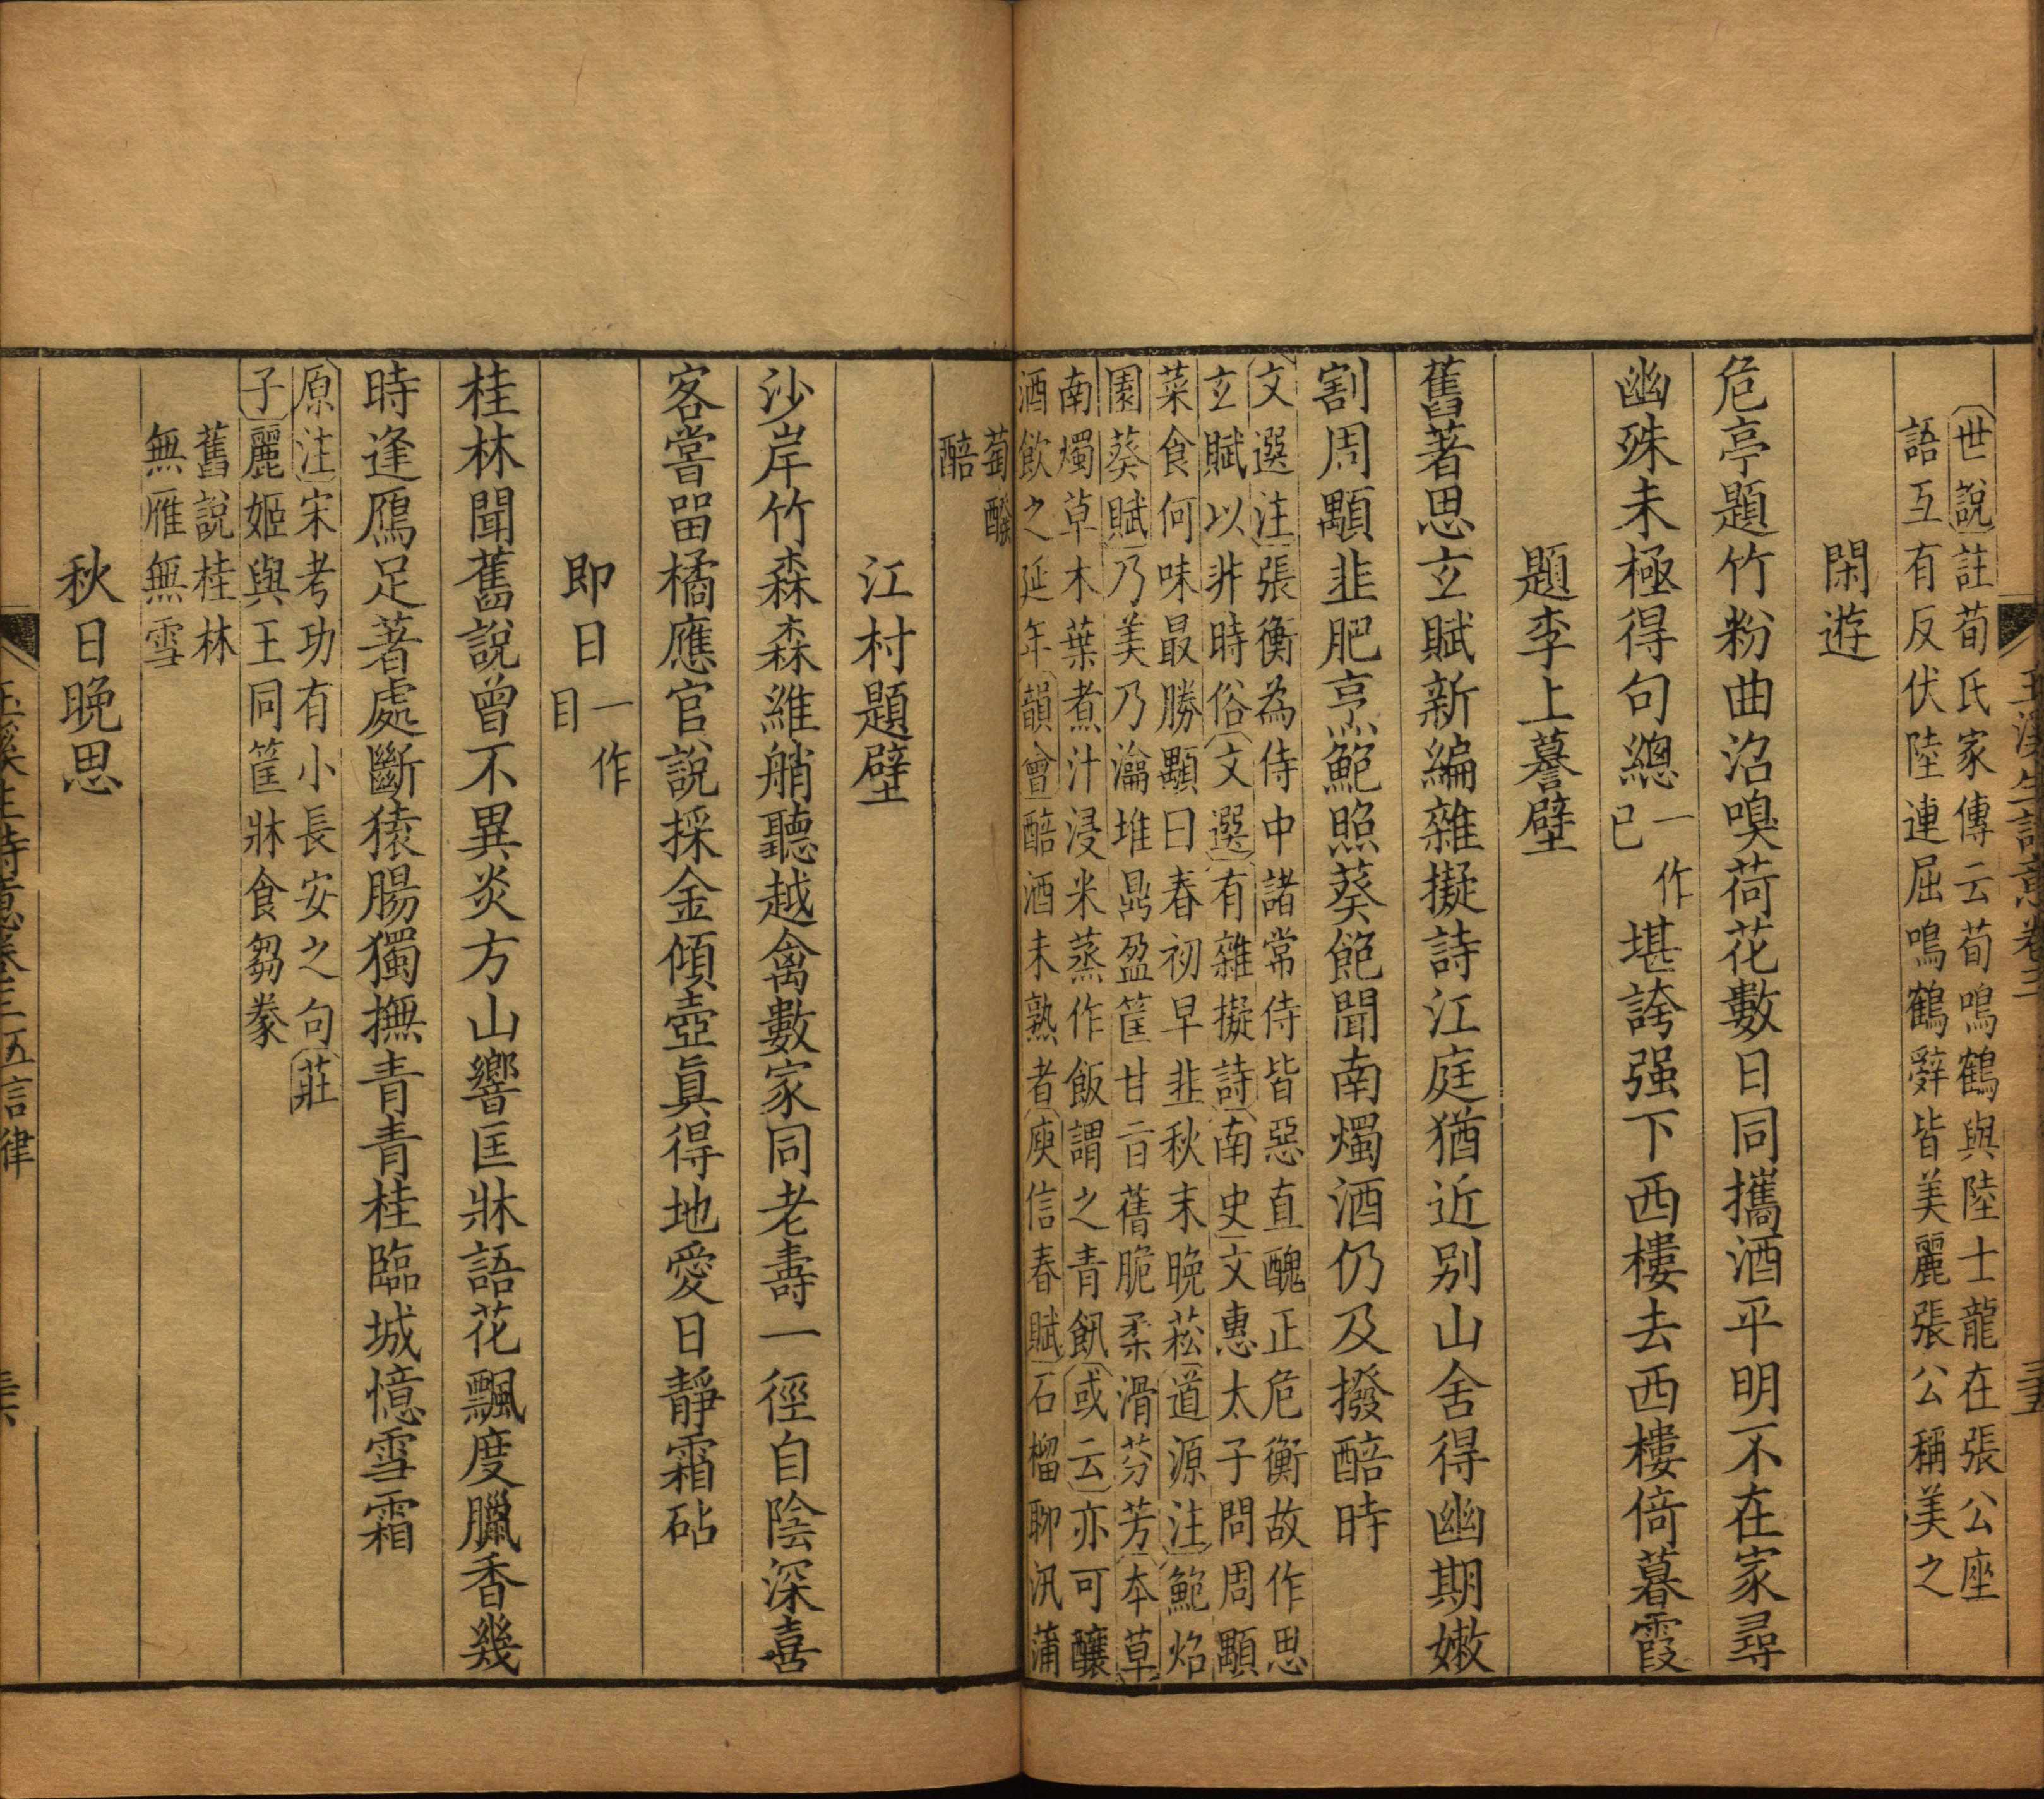 世說註荀氏家傳云荀鳴鶴與陸士龍在張公座
語互有反伏陸連屈鳴鶴辭皆美麗張公稱美之
閑遊
危亭題竹粉曲沼嗅荷花數日同攜酒平明不在家尋
幽殊未極得句總一作已堪誇强下西樓去西樓倚暮霞
題李上謩壁
舊著思玄賦新編雜擬詩江庭猶近别山舍得幽期嫩
割周顒韭肥烹鮑照葵飽聞南燭酒仍及撥醅時
文選注張衡為侍中諸常侍皆惡直醜正危衡故作思
玄賦以非時俗文選有雜擬詩南史文惠太子問周顒
菜食何味最勝顒曰春初早韭秋末晚菘道源注鮑炤
園葵賦乃美乃瀹堆鼎盈筐甘旨蒨脆柔滑芬芳本草
南燭草木葉煮汁浸米蒸作飯謂之青飢或云亦可釀
酒飲之延年韻會醅酒未熟者庾信春賦石榴聊汎蒲
萄醱
醅
江村題壁
沙岸竹森森維艄聽越禽數家同老壽一徑自陰深喜
客嘗留橘應官說採金傾壺眞得地愛日靜霜砧
即日一作目
桂林聞舊說曾不異炎方山響匡牀語花飄度臘香幾
時逢鴈足著處斷猿腸獨撫青青桂臨城憶雪霜
原注宋考功有小長安之句莊
子麗姬與王同筐牀食芻豢
舊說桂林
無雁無雪
秋日晚思
玉溪生詩意卷三 五言律